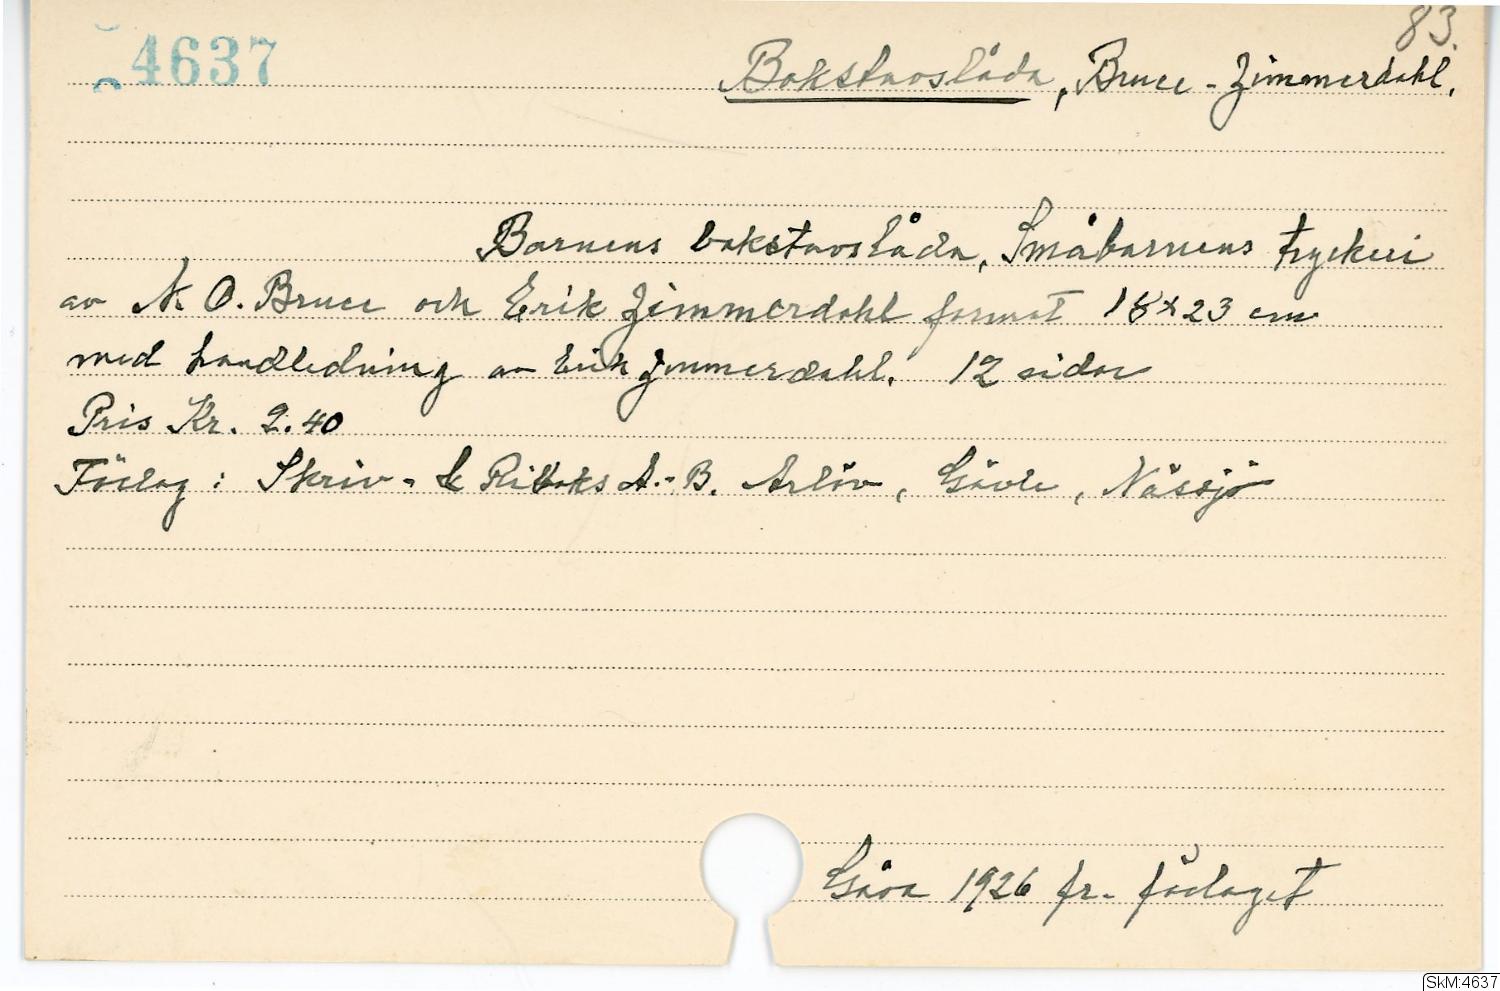 83.
4637
Bokstavslåda, Bruce - Zimmerdahl.
Barnens bokstavslåda, Småbarnens tryckeri
av N. O. Bruce och Erik Zimmerdahl format 18 x 23 cm
med handledning av Erik Zimmerdahl. 12 sidor
Pris Kr. 2.40
Förlag: Skriv- & Ritboks A.-B. Arlöv, Gävle, Nässjö
Gåva 1926 fr. förlaget
SkM:4637